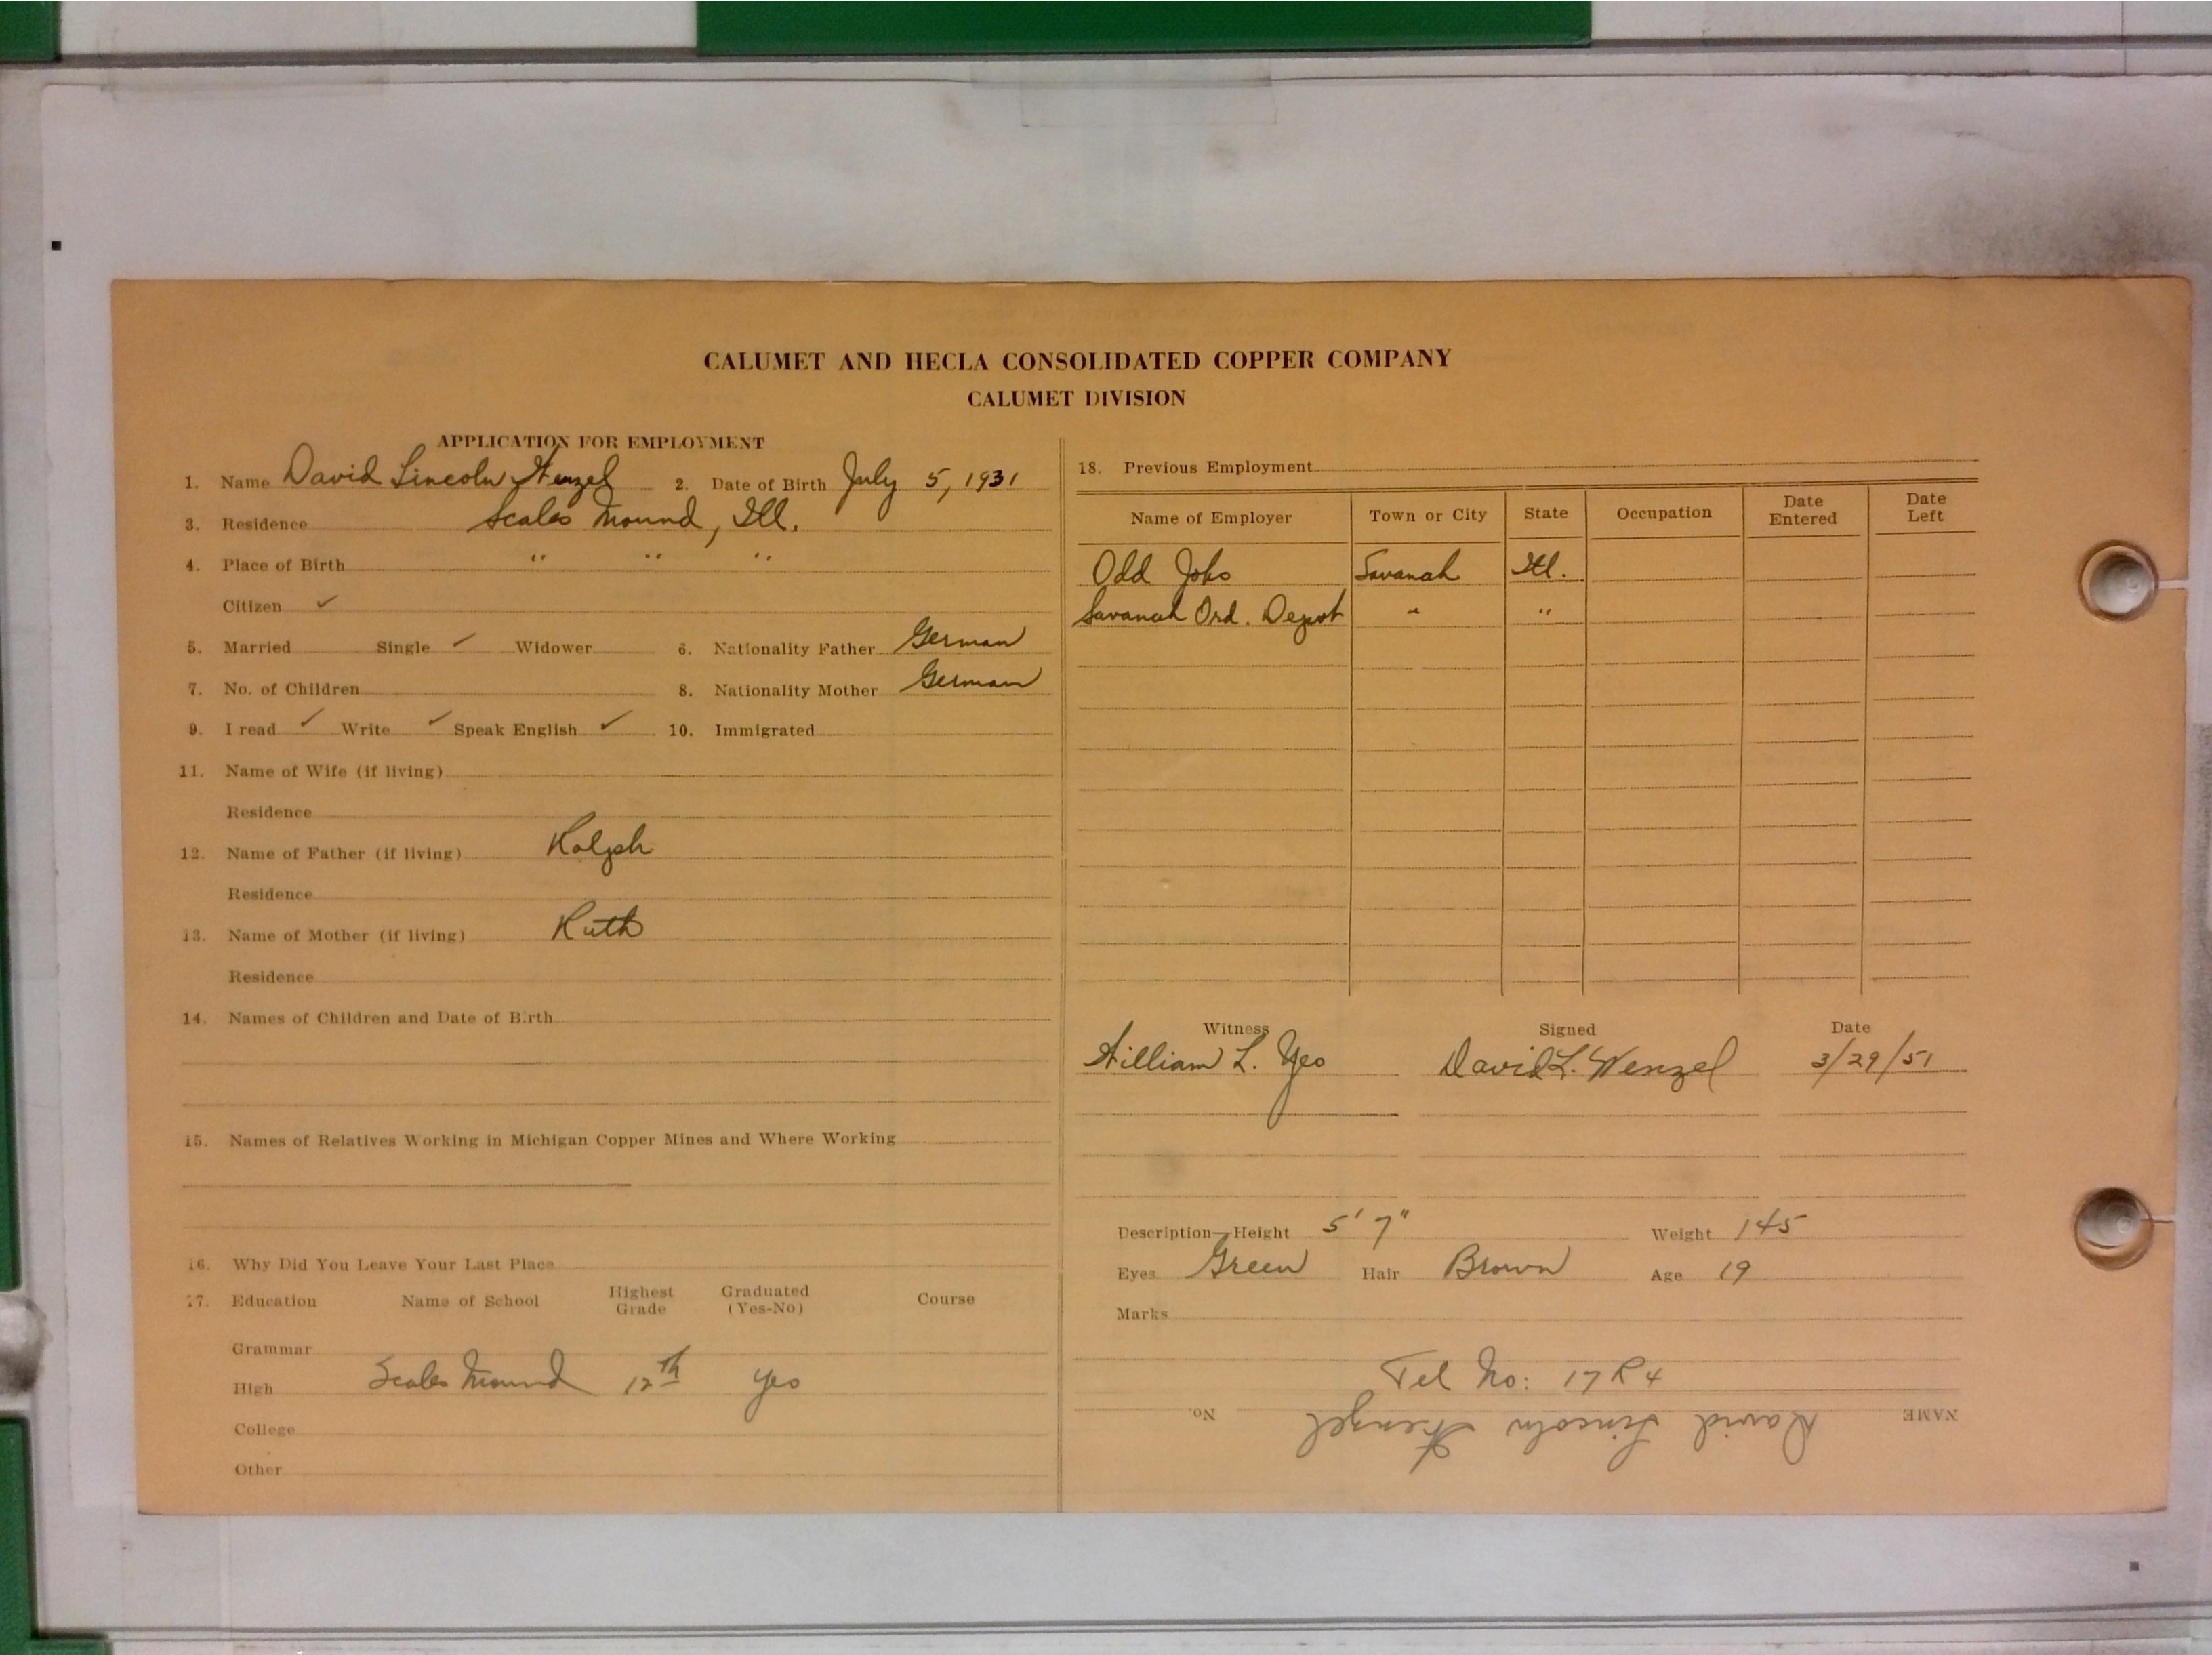 CALUMET AND HECLA CONSOLIDATED COPPER COMPANY
CALUMET DIVISION
APPLICATION FOR EMPLOYMENT
1. Name David Lincoln Wenzel 2. Date of Birth July 5, 1931
3. Residence Scales Mound, Ill.
4. Place of Birth " " "
Citizen ✓
5. Married Single ✓ Widower 6. Nationality Father German
7. No. of Children 8. Nationality Mother German
9. I read ✓ Write ✓ Speak English ✓ 10. Immigrated
11. Name of Wife (if living)
Residence
12. Name of Father (if living) Ralph
Residence
13. Name of Mother (if living) Ruth
Residence
14. Names of Children and Date of Birth
15. Names of Relatives Working in Michigan Copper Mines and Where Working
16. Why Did You Leave Your Last Place
17. Education Name of School Highest Grade Graduated (Yes-No) Course
Grammar
High Scales Mound 12th Yes
College
Other
18. Previous Employment
Name of Employer Town or City State Occupation Date Entered Date Left
Odd Jobs Savanah Ill.
Savanah Ord. Depot " "
Witness Signed Date
William L. Yeo David L. Wenzel 3/29/51
Description—Height 5' 7" Weight 145
Eyes Green Hair Brown Age 19
Marks
Tel No: 17R4
NAME David Lincoln Wenzel No.